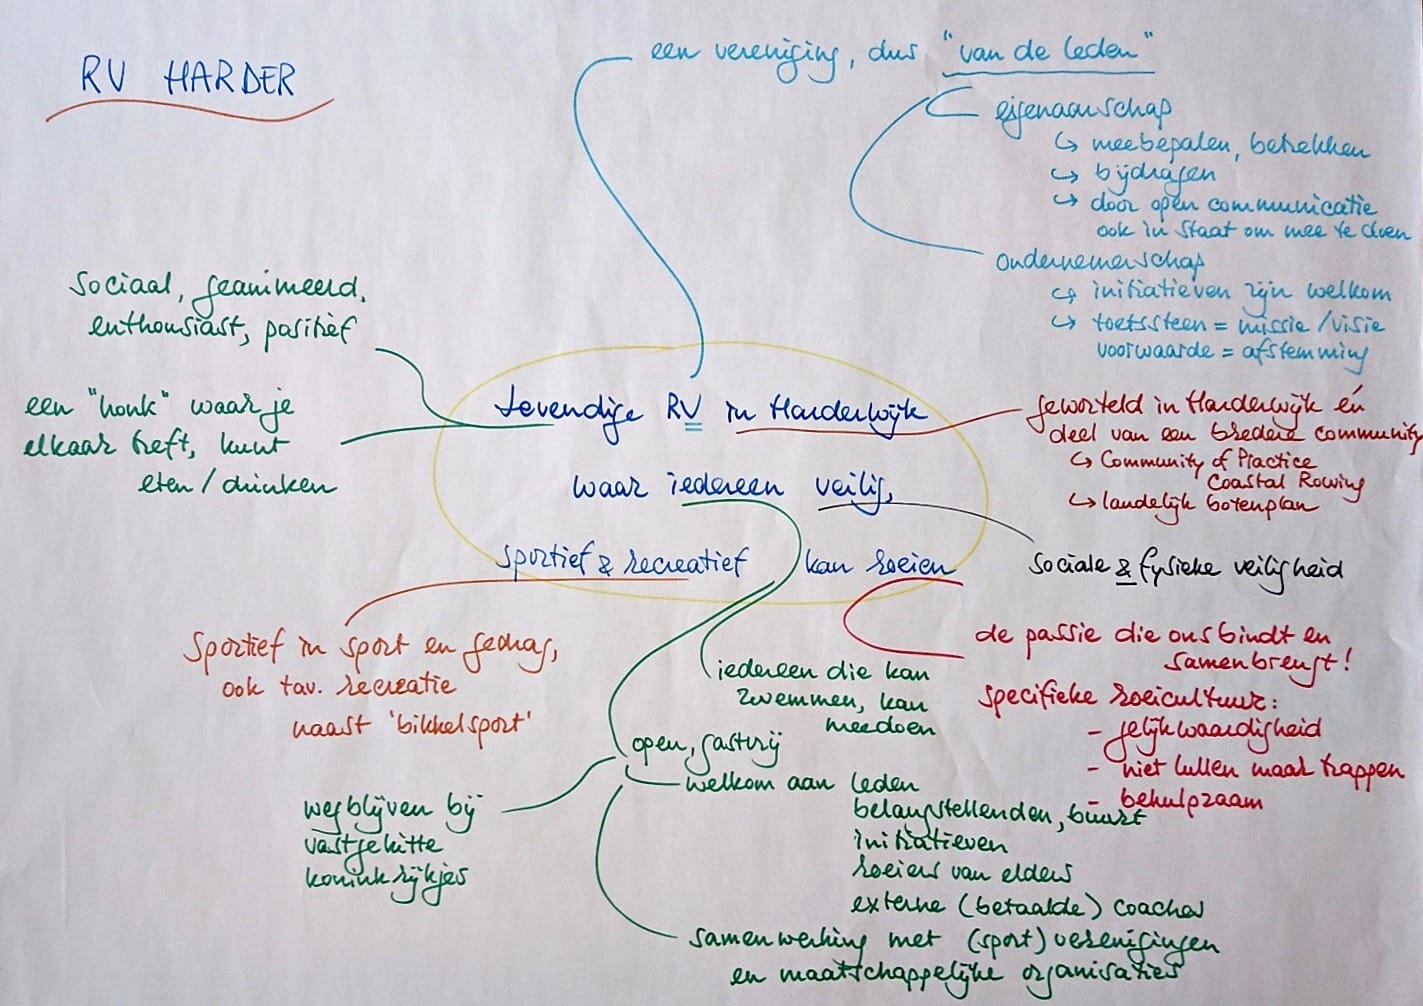 RV HARDER
een vereniging, dus "van de leden"
eigenaarschap
↳ meebepalen, betrekken
↳ bijdragen
↳ door open communicatie
ook in staat om mee te doen
ondernemerschap
↳ initiatieven zijn welkom
↳ toetssteen = missie / visie
voorwaarde = afstemming
Sociaal, geanimeerd,
enthousiast, positief
een "honk" waar je
elkaar treft, kunt
eten / drinken
Levendige RV in Harderwijk
waar iedereen veilig,
sportief & recreatief kan roeien
geworteld in Harderwijk én
deel van een bredere community
↳ Community of Practice
Coastal Rowing
↳ landelijk botenplan
sociale & fysieke veiligheid
de passie die ons bindt en
samenbrengt!
specifieke roeicultuur:
- gelijkwaardigheid
- niet lullen maar trappen
- behulpzaam
Sportief in sport en gedrag,
ook tav. recreatie
naast 'bikkelsport'
iedereen die kan
zwemmen, kan
meedoen
open, gastvrij
wegblijven bij
vastgekitte
koninkrijkjes
welkom aan leden
belangstellenden, buurt
initiatieven
roeiers van elders
externe (betaalde) coaches
samenwerking met (sport) verenigingen
en maatschappelijke organisaties